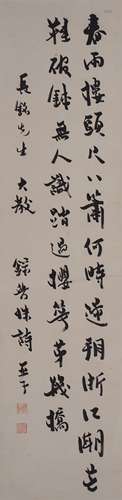 春雨樓頭尺八簫何時還朝浙江潮芒
鞋破鉢無人識踏過櫻花第幾橋
長銘先生 大教 錄曼殊詩